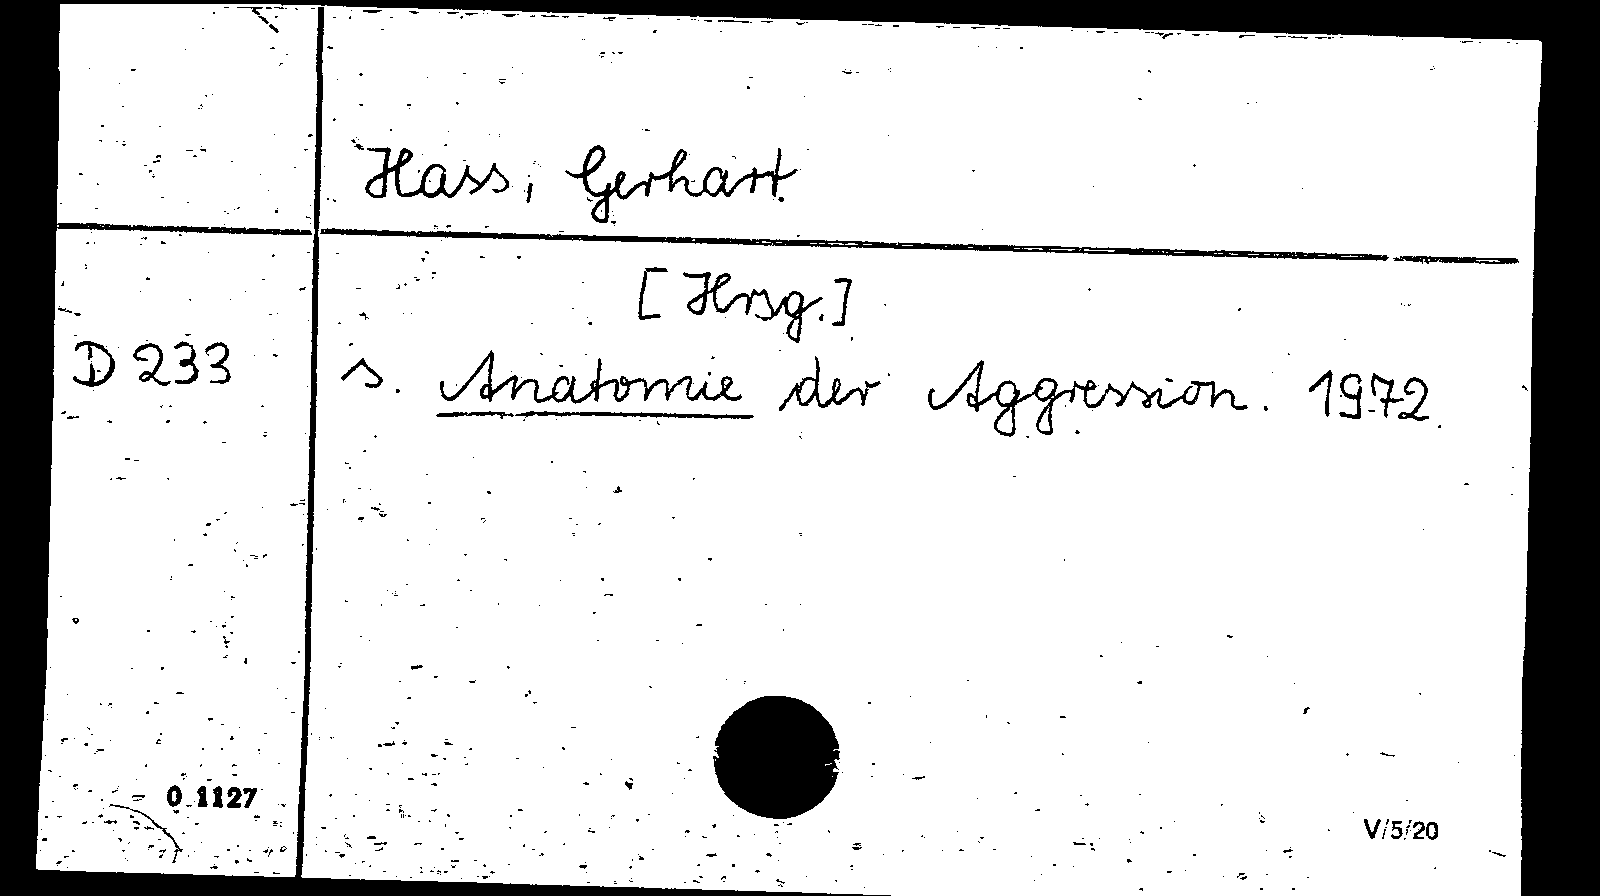 Hass, Gerhart
[Hrsg.]
D 233 s. Anatomie der Aggression. 1972.
0 1127
V/5/20